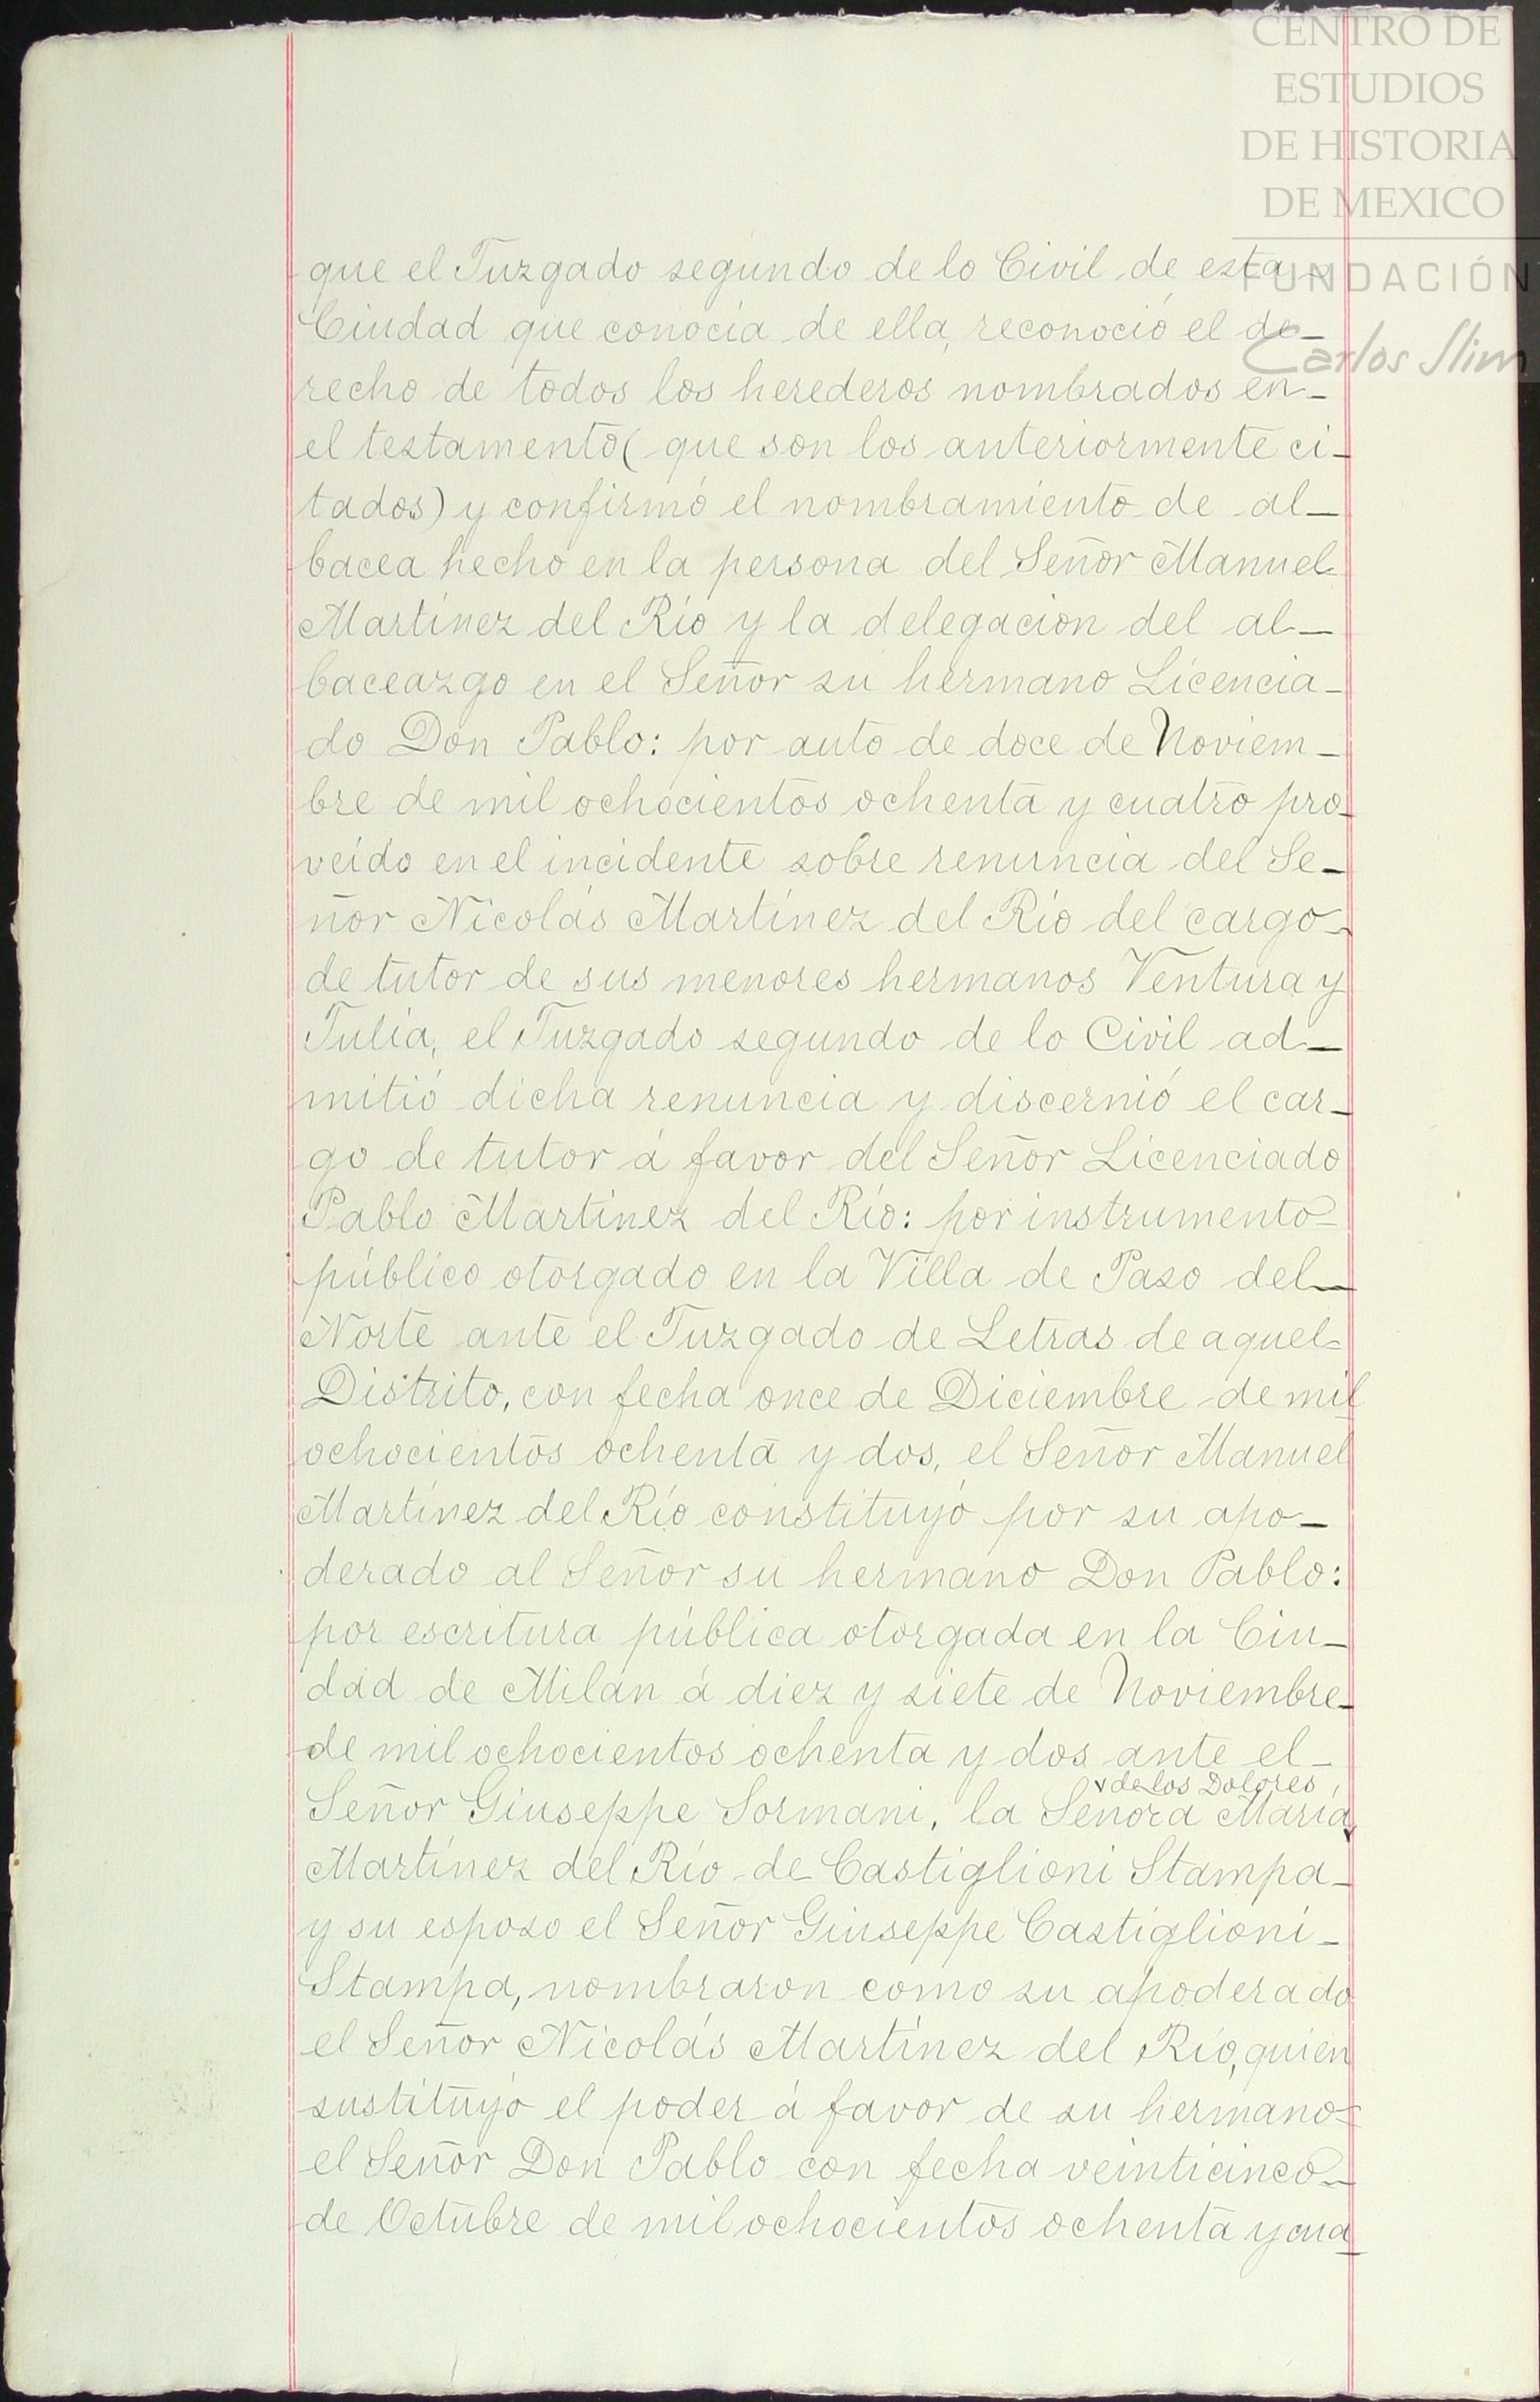 CENTRO DE
ESTUDIOS
DE HISTORIA
DE MEXICO
FUNDACIÓN
Carlos Slim
que el Juzgado segundo de lo Civil de esta
Ciudad que conocía de ella, reconoció el de_
recho de todos los herederos nombrados en_
el testamento (que son los anteriormente ci_
tados) y confirmó el nombramiento de al_
bacea hecho en la persona del Señor Manuel
Martínez del Río y la delegacion del al_
baceazgo en el Señor su hermano Licencia_
do Don Pablo: por auto de doce de Noviem_
bre de mil ochocientos ochenta y cuatro pro_
veído en el incidente sobre renuncia del Se_
ñor Nicolás Martínez del Río del cargo
de tutor de sus menores hermanos Ventura y
Julia, el Juzgado segundo de lo Civil ad_
mitió dicha renuncia y discernió el car_
go de tutor á favor del Señor Licenciado
Pablo Martínez del Río: por instrumento
público otorgado en la Villa de Paso del
Norte ante el Juzgado de Letras de aquel
Distrito, con fecha once de Diciembre de mil
ochocientos ochenta y dos, el Señor Manuel
Martínez del Río constituyó por su apo_
derado al Señor su hermano Don Pablo:
por escritura pública otorgada en la Ciu_
dad de Milán á diez y siete de Noviembre
de mil ochocientos ochenta y dos ante el_
de los Dolores
Señor Giuseppe Sormani, la Señora María
Martínez del Río de Castiglioni Stampa_
y su esposo el Señor Giuseppe Castiglioni_
Stampa, nombraron como su apoderado
el Señor Nicolás Martínez del Río, quien
sustituyó el poder á favor de su hermano
el Señor Don Pablo con fecha veinticinco
de Octubre de mil ochocientos ochenta y cua_